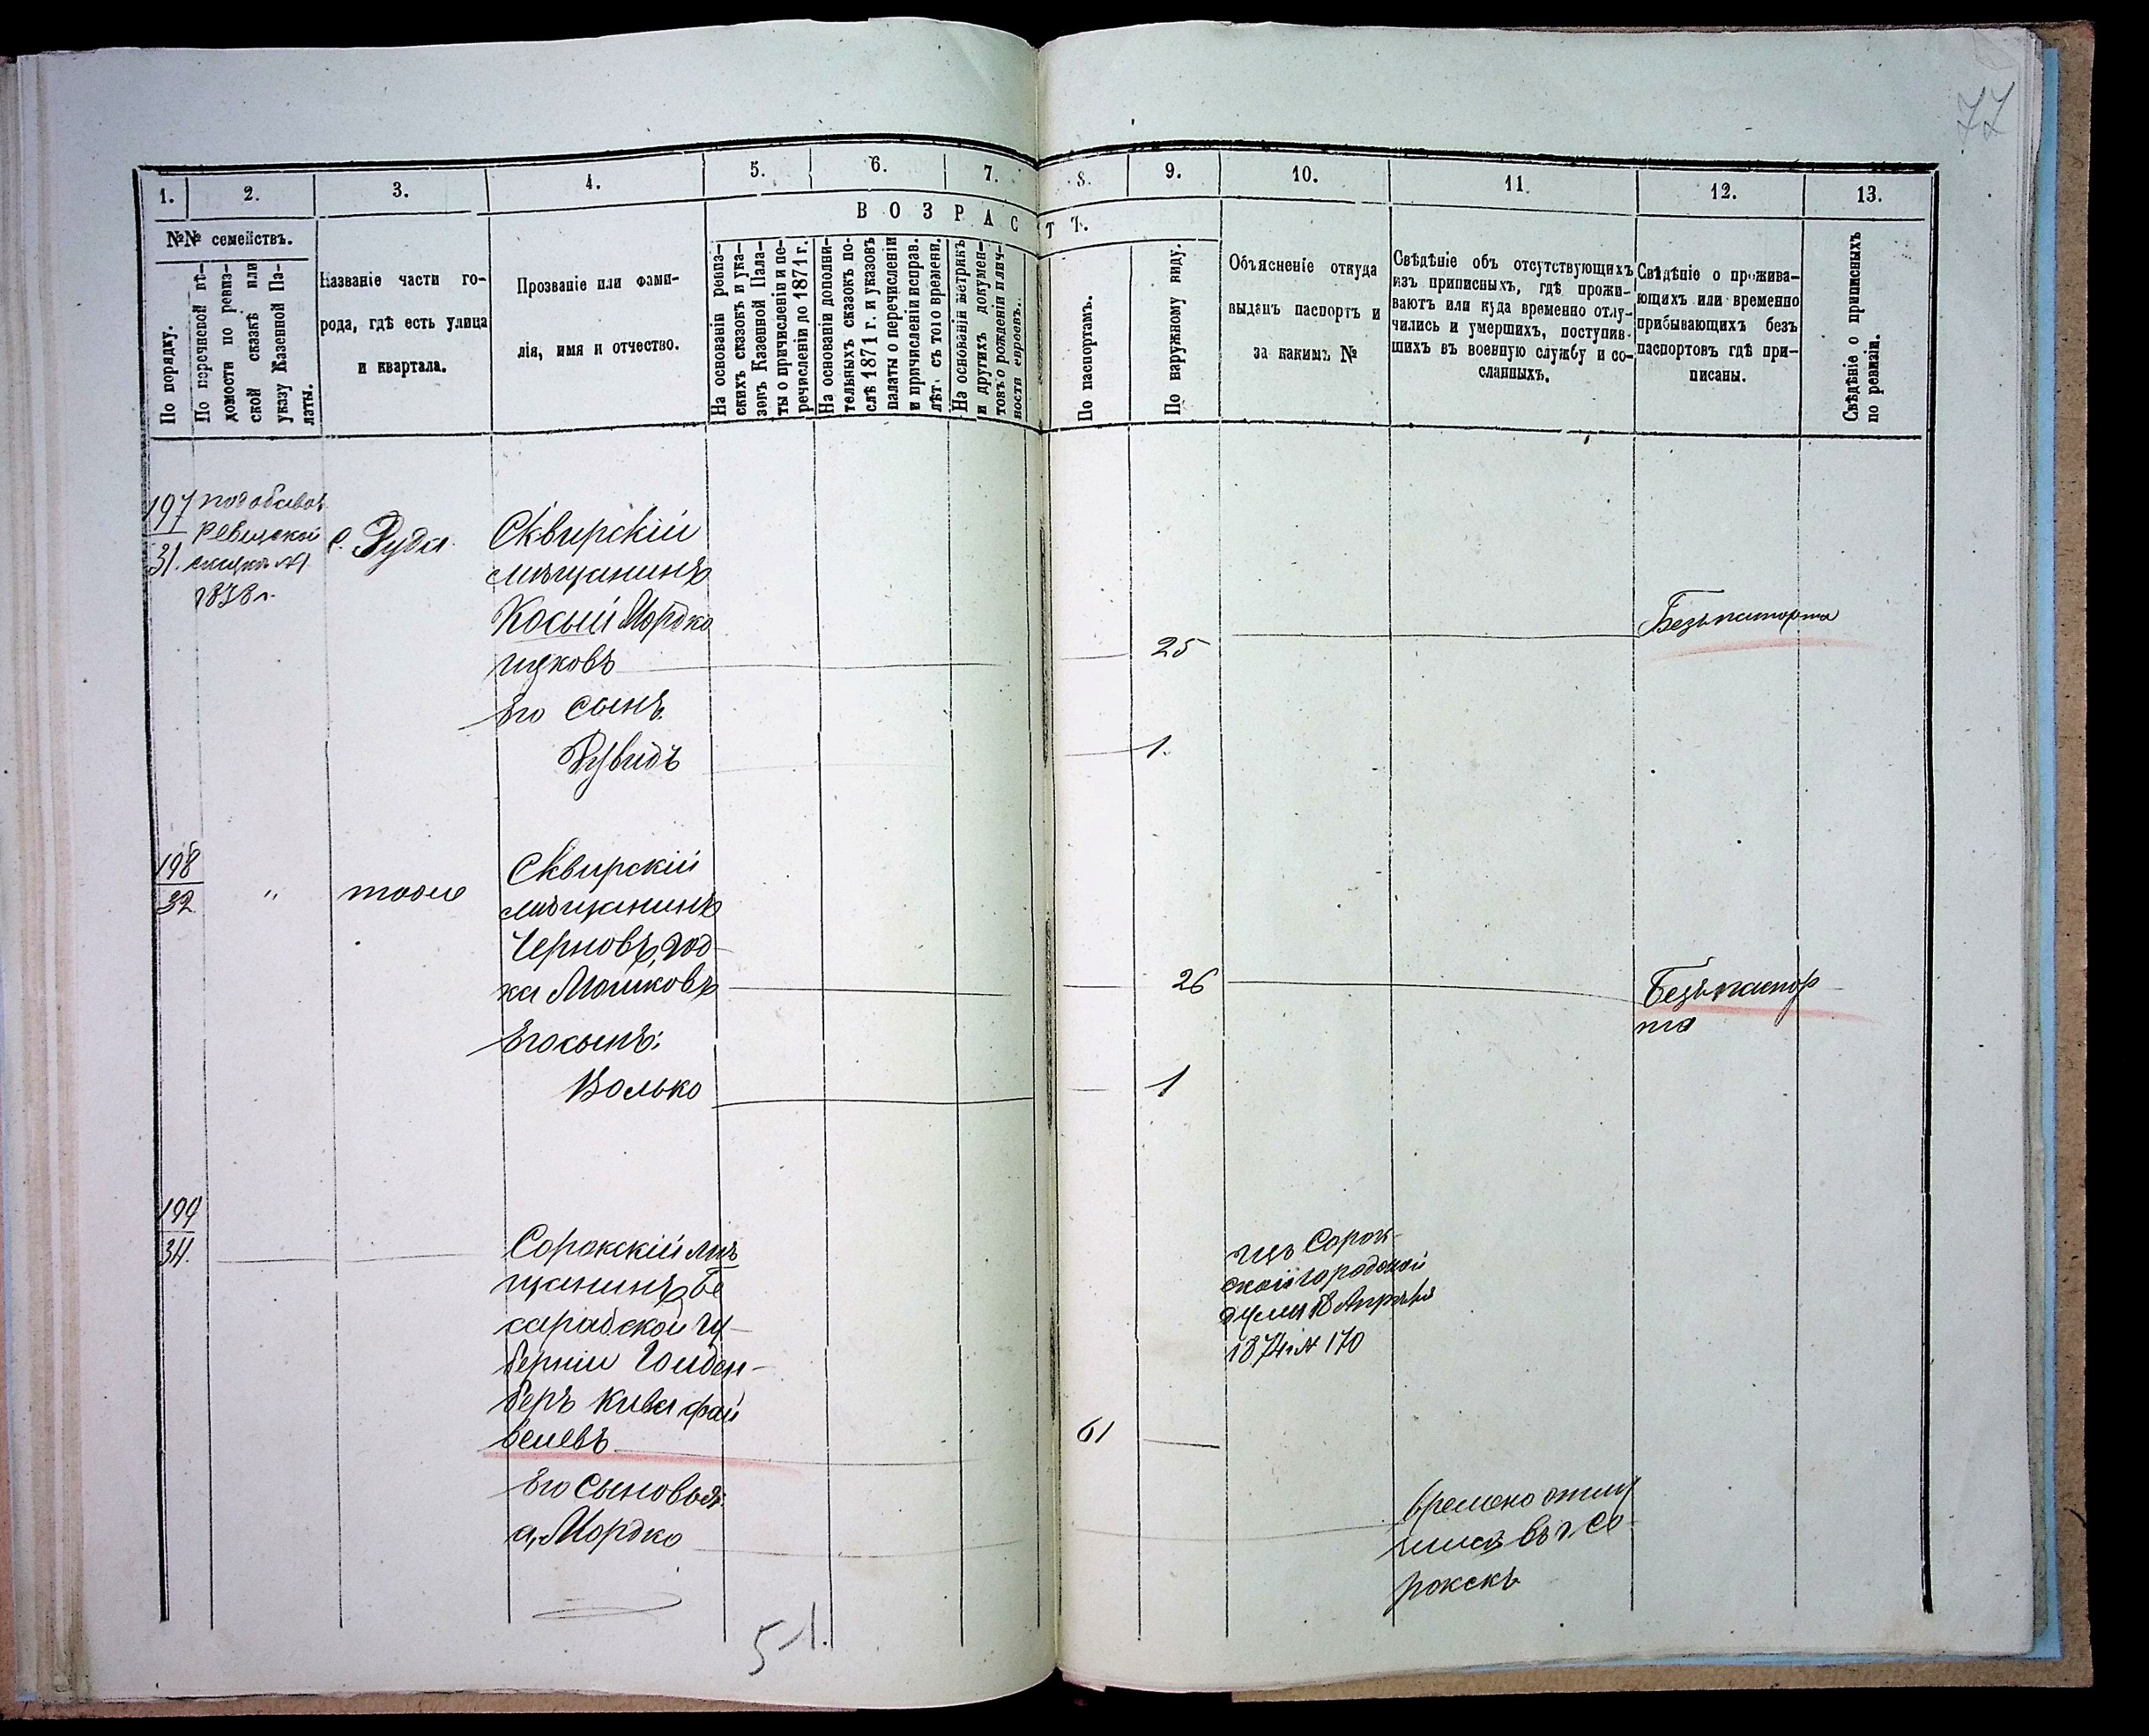 77
1. 2. 3. 4. 5. 6. 7. 8. 9. 10. 11. 12. 13.
ВОЗРАСТЪ.
№№ семействъ.
По порядку.
По перечновой вѣ-
домости по ревиз-
ской сказкѣ или
указу Казенной Па-
латы.
Названіе части го-
рода, гдѣ есть улица
и квартала.
Прозваніе или фами-
лія, имя и отчество.
На основаніи ревиз-
скихъ сказокъ и ука-
зовъ Казенной Пала-
ты о причисленіи и пе-
речисленіи до 1871 г.
На основаніи дополни-
тельныхъ сказокъ по-
слѣ 1871 г. и указовъ
палаты о перечисленіи
и причисленіи исправ.
лѣт. съ того времени.
На основаніи метрикъ
и другихъ докумен-
товъ о рожденіи и лич-
ности евреевъ.
По паспортамъ.
По наружному виду.
Объясненіе откуда
выданъ паспортъ и
за какимъ №
Свѣдѣніе объ отсутствующихъ
изъ приписныхъ, гдѣ прожи-
ваютъ или куда временно отлу-
чились и умершихъ, поступив-
шихъ въ военную службу и со-
сланныхъ.
Свѣдѣніе о прожива-
ющихъ или временно
прибывающихъ безъ
паспортовъ гдѣ при-
писаны.
Свѣдѣніе о приписныхъ
по ревизіи.
197
31.
1878 г.
с. Руда.
Сквирскій
мѣщанинъ
Косый Мордко
Ицковъ
25
Безъ паспорта
Его сынъ
Рувидъ
1.
198
32
"
тоже
Сквирскій
мѣщанинъ
Черновъ, Юд-
ка Мошковъ
26
Безъ паспор
та
Его сынъ:
Волько
1
199
34.
Сорокскій мѣ
щанинъ Бе
сарабской гу-
берніи Гольден-
беръ Кива Фай
велевъ
61
изъ Сорок-
ской городской
думы 18 Апрѣля
1874 г. № 170
Его сыновья:
а, Мордко
временно отлу
чился въ г. Со
рокскъ
5-1.